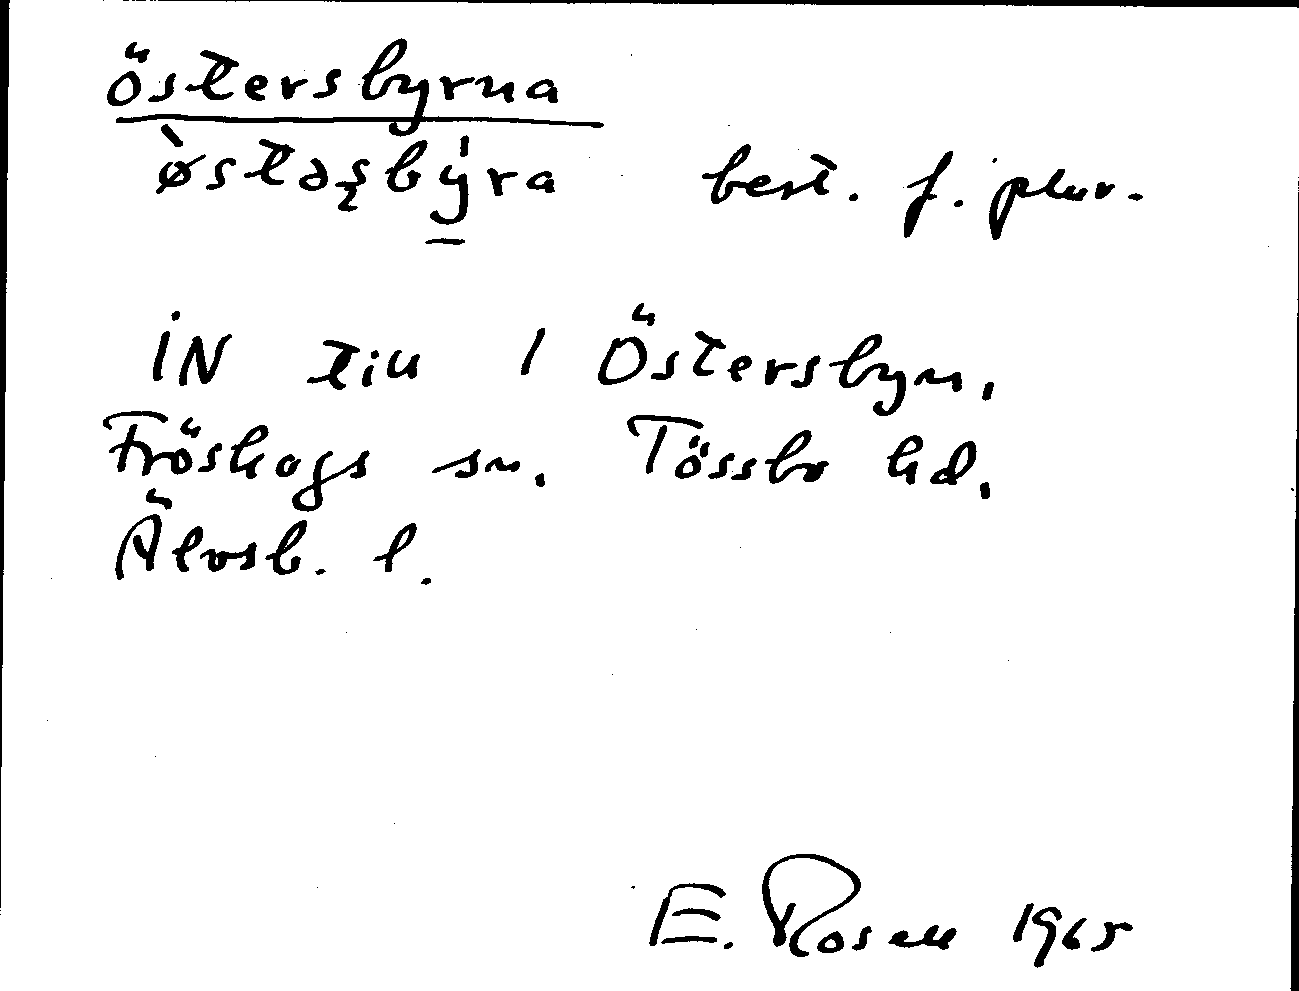 östersbyrna
østəʂbýra best. f. plur.
IN till 1 Östersbyn,
Fröskogs sn, Tössbo hd,
Älvsb. l.
E. Rosell 1965